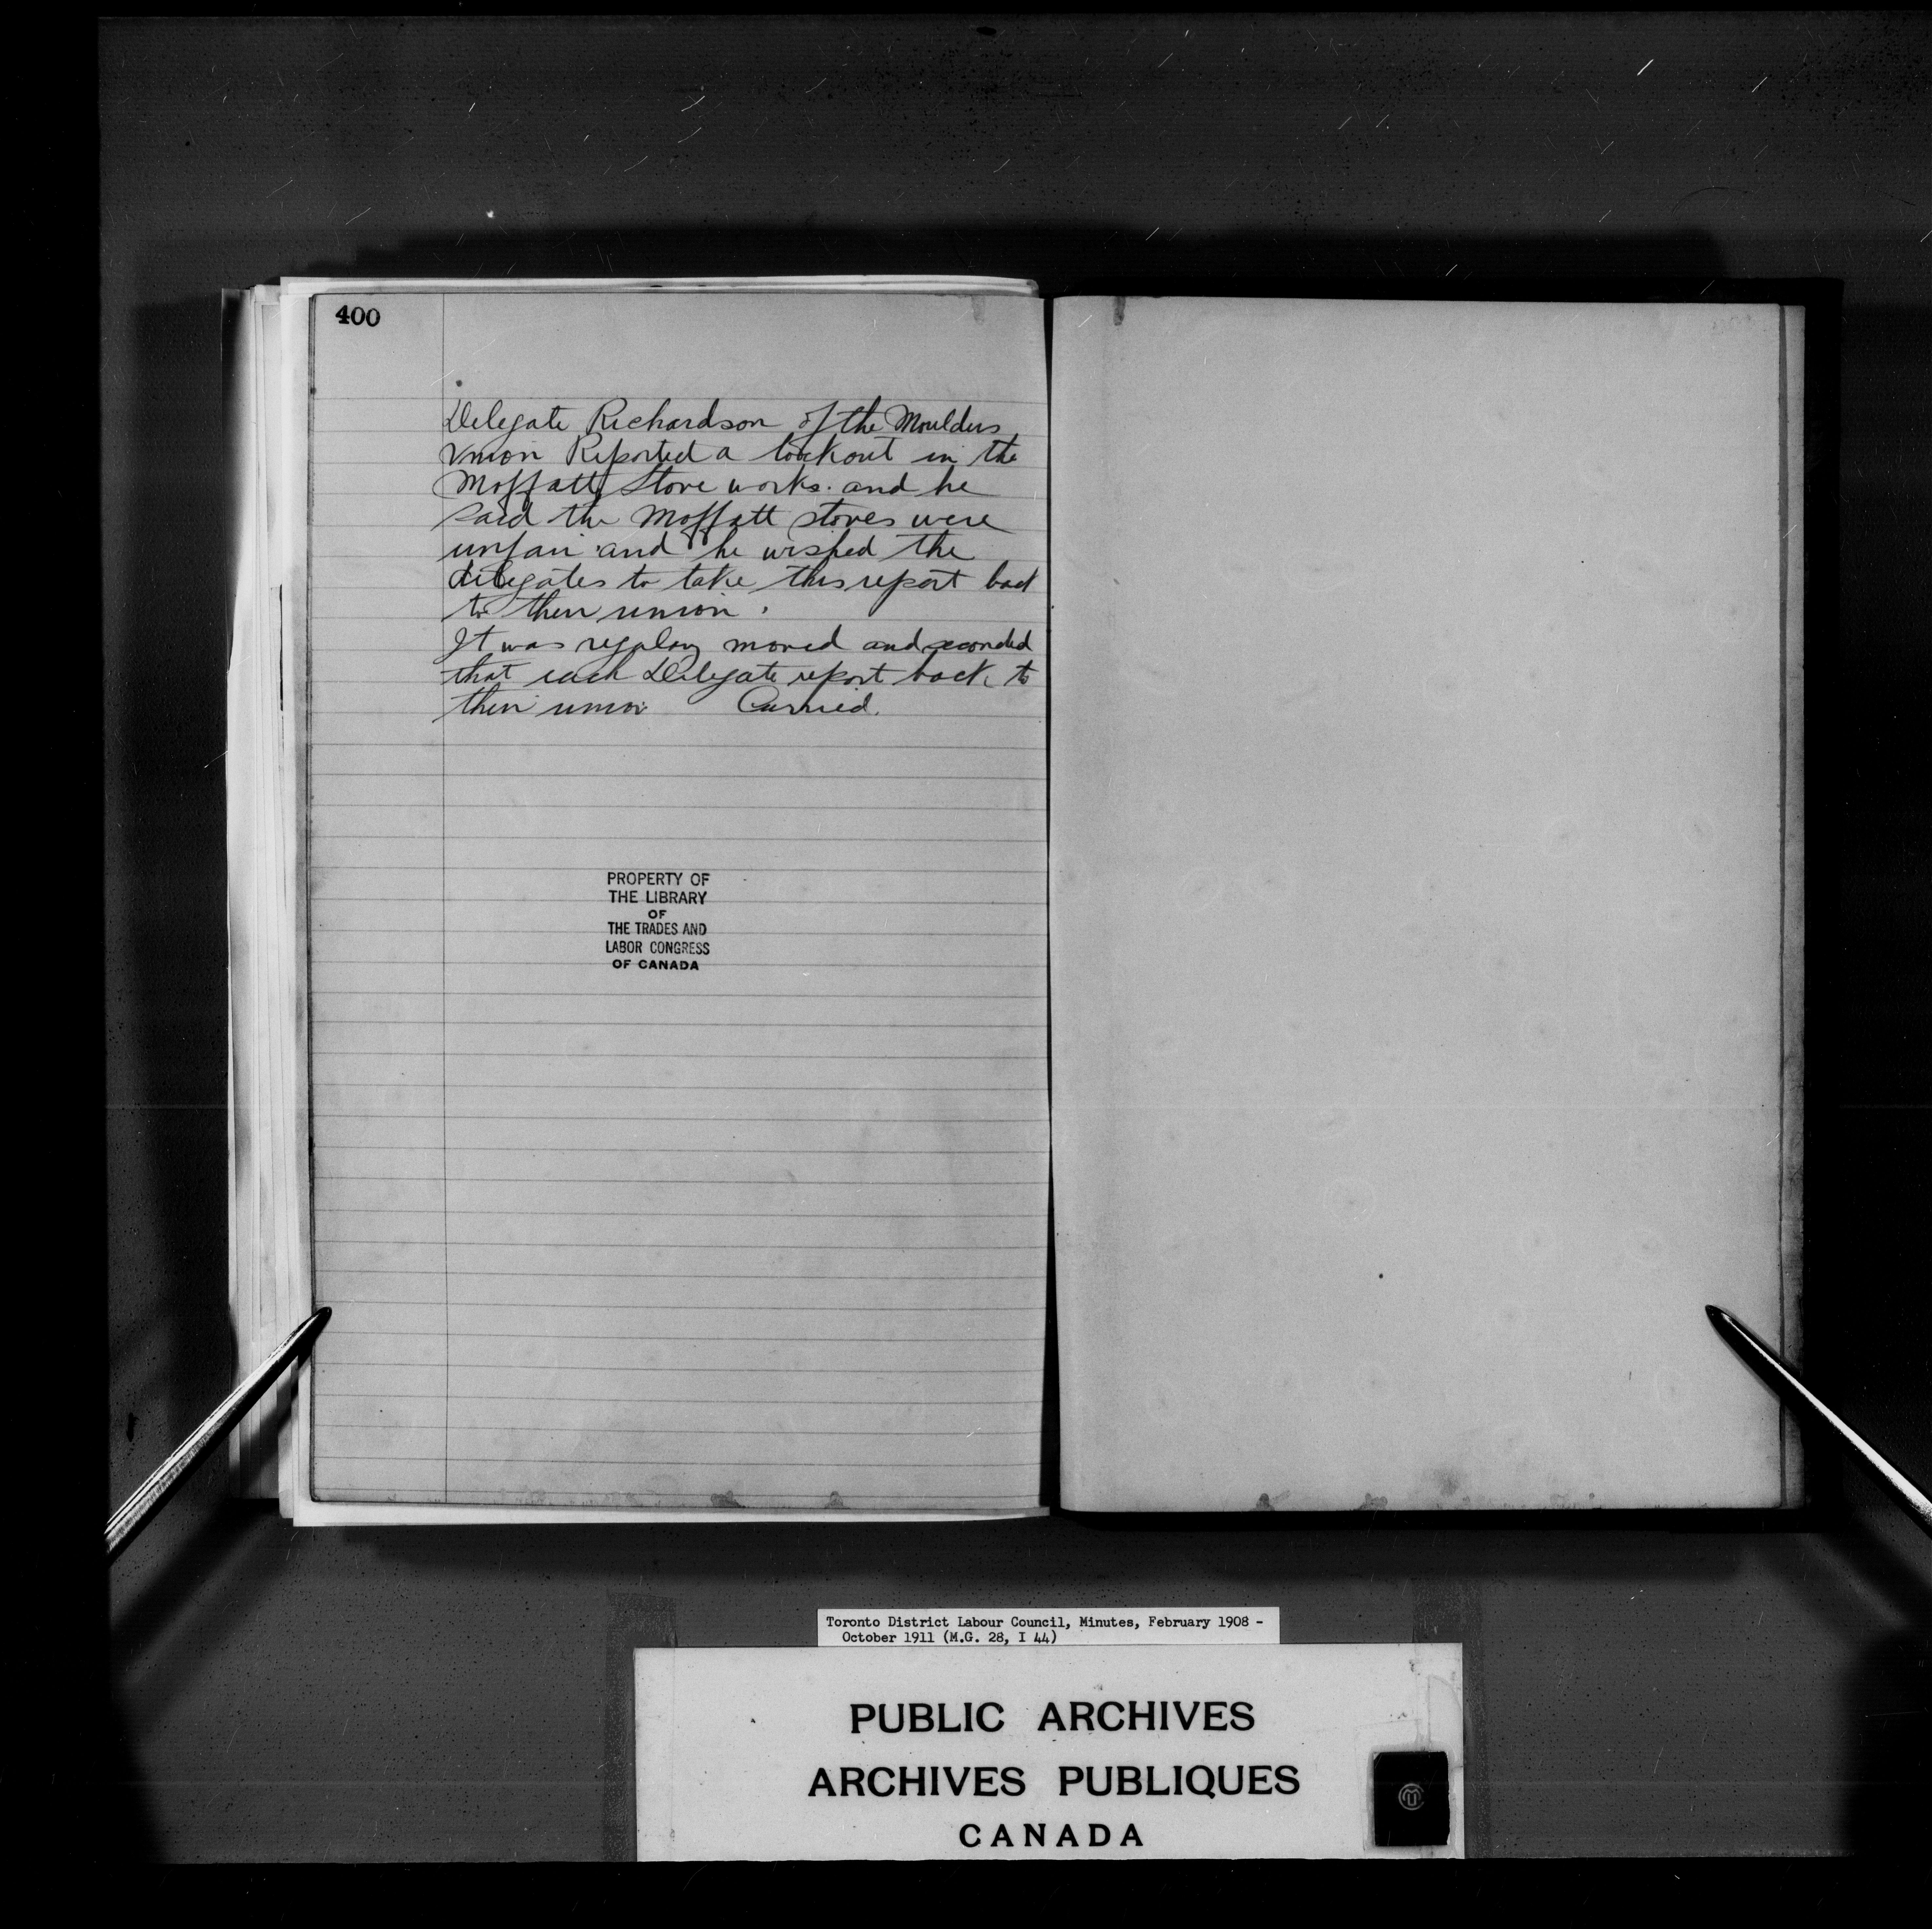 400
Delegate Richardson of the Moulders
Union Reported a lockout in the
Moffatt Stove works. and he
said the Moffatt stoves were
unfair and he wished the
delegates to take this report back
to their union.
It was regulary moved and seconded
that each Delegate report back to
their union Carried.
PROPERTY OF
THE LIBRARY
OF
THE TRADES AND
LABOR CONGRESS
OF CANADA
Toronto District Labour Council, Minutes, February 1908 -
October 1911 (M.G. 28, I 44)
PUBLIC ARCHIVES
ARCHIVES PUBLIQUES
CANADA